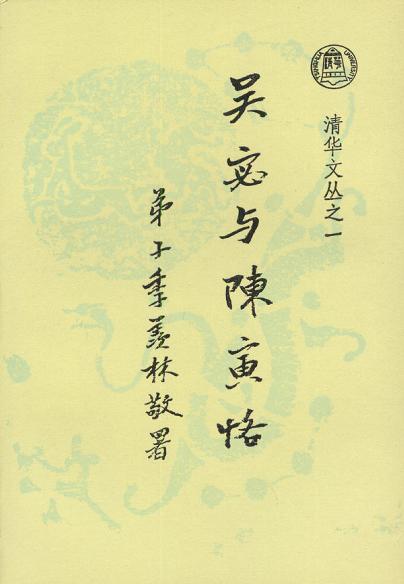 清华文丛之一
吴宓与陳寅恪
弟子季羨林敬署